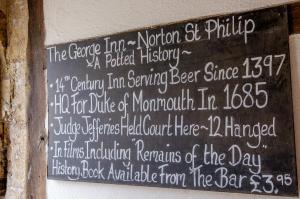 The George Inn ~ Norton St Philip
~ A Potted History ~
• 14TH Century Inn Serving Beer Since 1397
• HQ For Duke of Monmouth In 1685
• Judge Jefferies Held Court Here ~ 12 Hanged
• In Films Including "Remains of the Day"
History Book Available From The Bar £3.95